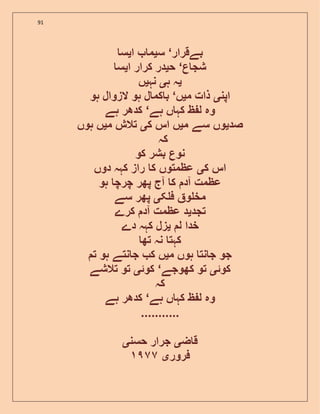 91
بےقرار‘ سیماب ایسا
شجاع‘ حیدر کرار ایسا
یہ ہی نہیں
اپنی ذات میں‘ باکمال ہو لازوال ہو
وہ لفظ کہاں ہے‘ کدھر ہے
صدیوں سے میں اس کی تلاش میں ہوں
کہ
نوع بشر کو
اس کی عظمتوں کا راز کہہ دوں
عظمت آدم کا آج پھر چرچا ہو
مخلوق فلکی پھر سے
تجدید عظمت آدم کرے
خدا لم یزل کہہ دے
کہتا نہ تھا
جو جانتا ہوں میں کب جانتے ہو تم
کوئی تو کھوجے‘ کوئی تو تلاشے
کہ
وہ لفظ کہاں ہے‘ کدھر ہے
...........
قاضی جرار حسنی
فروری ١٩٧٧